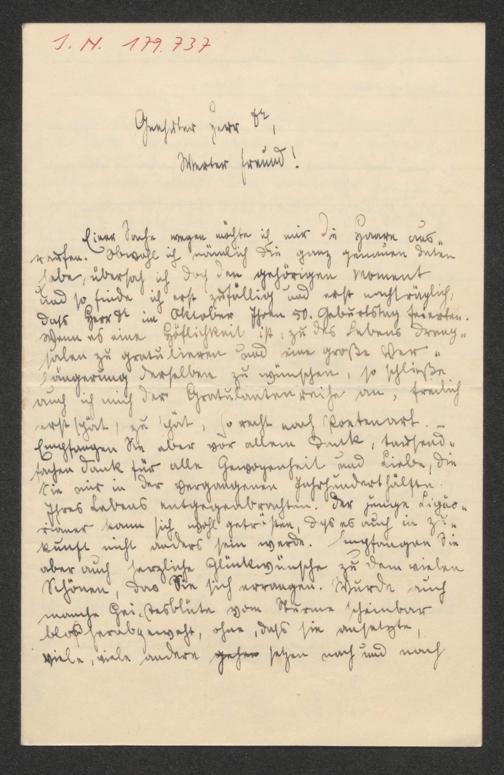 I. N. 179.737
Geehrter Herr Dr,
Werter Freund!
Einer Sache wegen möchte ich mir die Haare aus-
raufen. Obwohl ich nämlich die ganz genauen Daten
habe, übersah ich doch den gehörigen Moment
und so finde ich erst zufällig und erst nachträglich,
dass Herr Dr im Oktober Ihren 50. Geburtstag feierten.
Wenn es eine Höflichkeit ist, zu des Lebens Drang-
salen zu gratulieren und eine große Ver-
längerung derselben zu wünschen, so schließe
auch ich mich der Gratulantenreihe an, freilich
erst spät, zu spät, so recht nach Poetenart. –
Empfangen Sie aber vor allem Dank, tausend-
fachen Dank für alle Gewogenheit und Liebe, die
Sie mir in der vergangenen Jahrhunderthälfte
Ihres Lebens entgegenbrachten. Der junge
kann sich wohl getrösten, dass es auch in Zu-
kunft nicht anders sein werde. Empfangen Sie
aber auch herzliche Glückwünsche zu dem vielen
Schönen, das Sie sich errangen. Wurde auch
manche Geistesblüte vom Sturme scheinbar
blos herabgeweht, ohne, dass sie ansetzte,
viele, viele andere setzen nach und nach